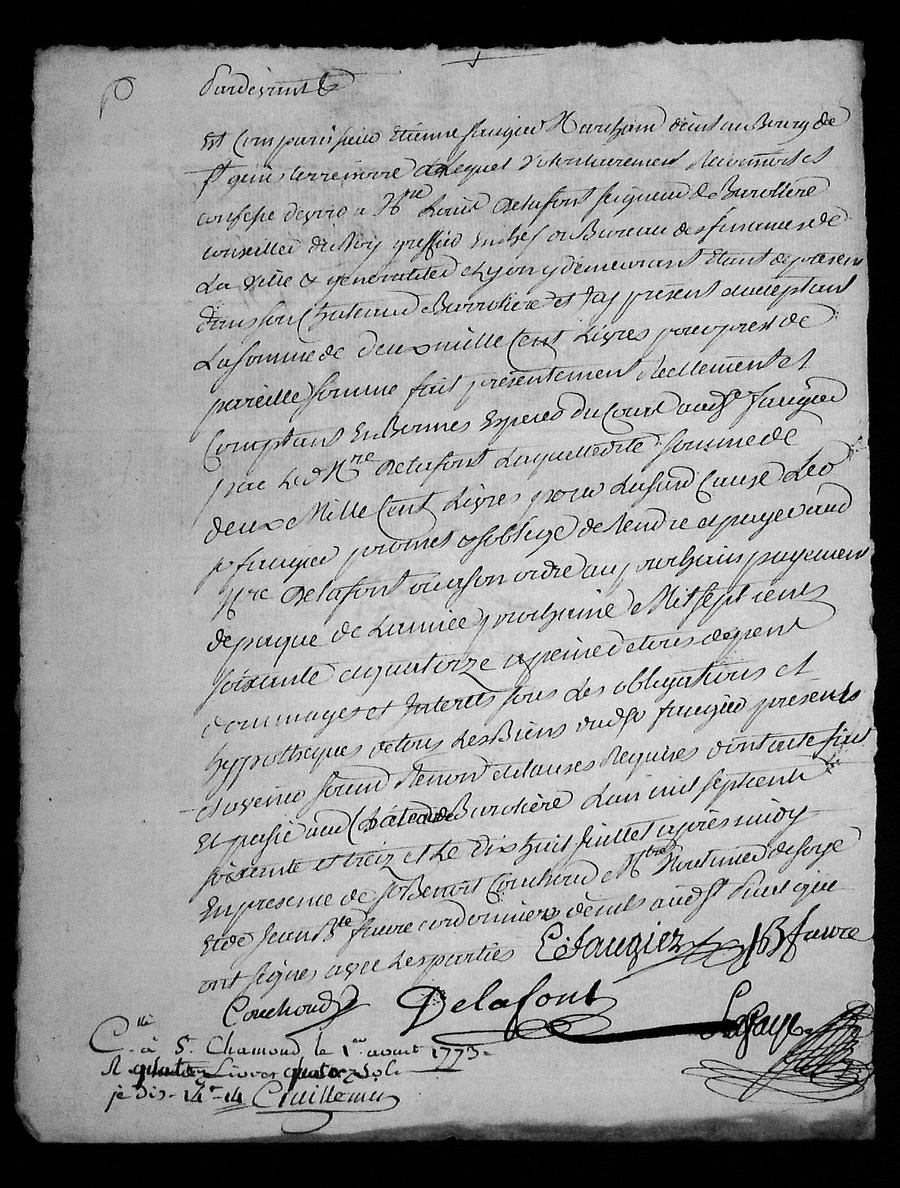 Pardevant &
Est Comparu sieur Etienne faugier Marchand demt au Bourg de
st genis terrenoire Lequel volontairement Reconnoit et
confesse devoir a Mre Louis Delafont seigneur de Burollière
conseiller du Roy greffier En chef au Bureau des finances de
La ville & generalité de Lyon y demeurant Etant de present
dans son Chateau de Burrolière et icy present & acceptant
La somme de deux mille Cent Livres pour prest de
pareille somme fait presentement Reellement et
Comptant En Bonnes Especes du Cours audt sr faugier
par led Mre Delafont Laquelle dite somme de
deux Mille Cent Livres pour La susd Cause Led
sr faugier promet & s'oblige de Rendre & payer aud
Mre Delafont ou a son ordre au prochain payement
de paque de L'année prochaine Mil sept cents
soixante & quatorze a peine de tous depens
dommages et Interets sous Les obligations et
hyppotheques de tous Les Biens dud sr faugier presents
& avenir soum Renon & clauses Requises dont acte fait
Et passé aud Château de Burolière L'an mil sept cents
soixante et treize et Le dix huit Juillet apres midy
En presence de sr Benoit Couchoud Mtre
Et de Jean Bte favre cordonnier demts aud st Paul qui
ont signés avec Les parties E faugier JB favre
Couchoud Delafont
Lafaye
Clle
C. à St. Chamond le 1er aout 1773.
R quatorze Livres quatorze sols
je dis - 14lt - 14 Guillemin